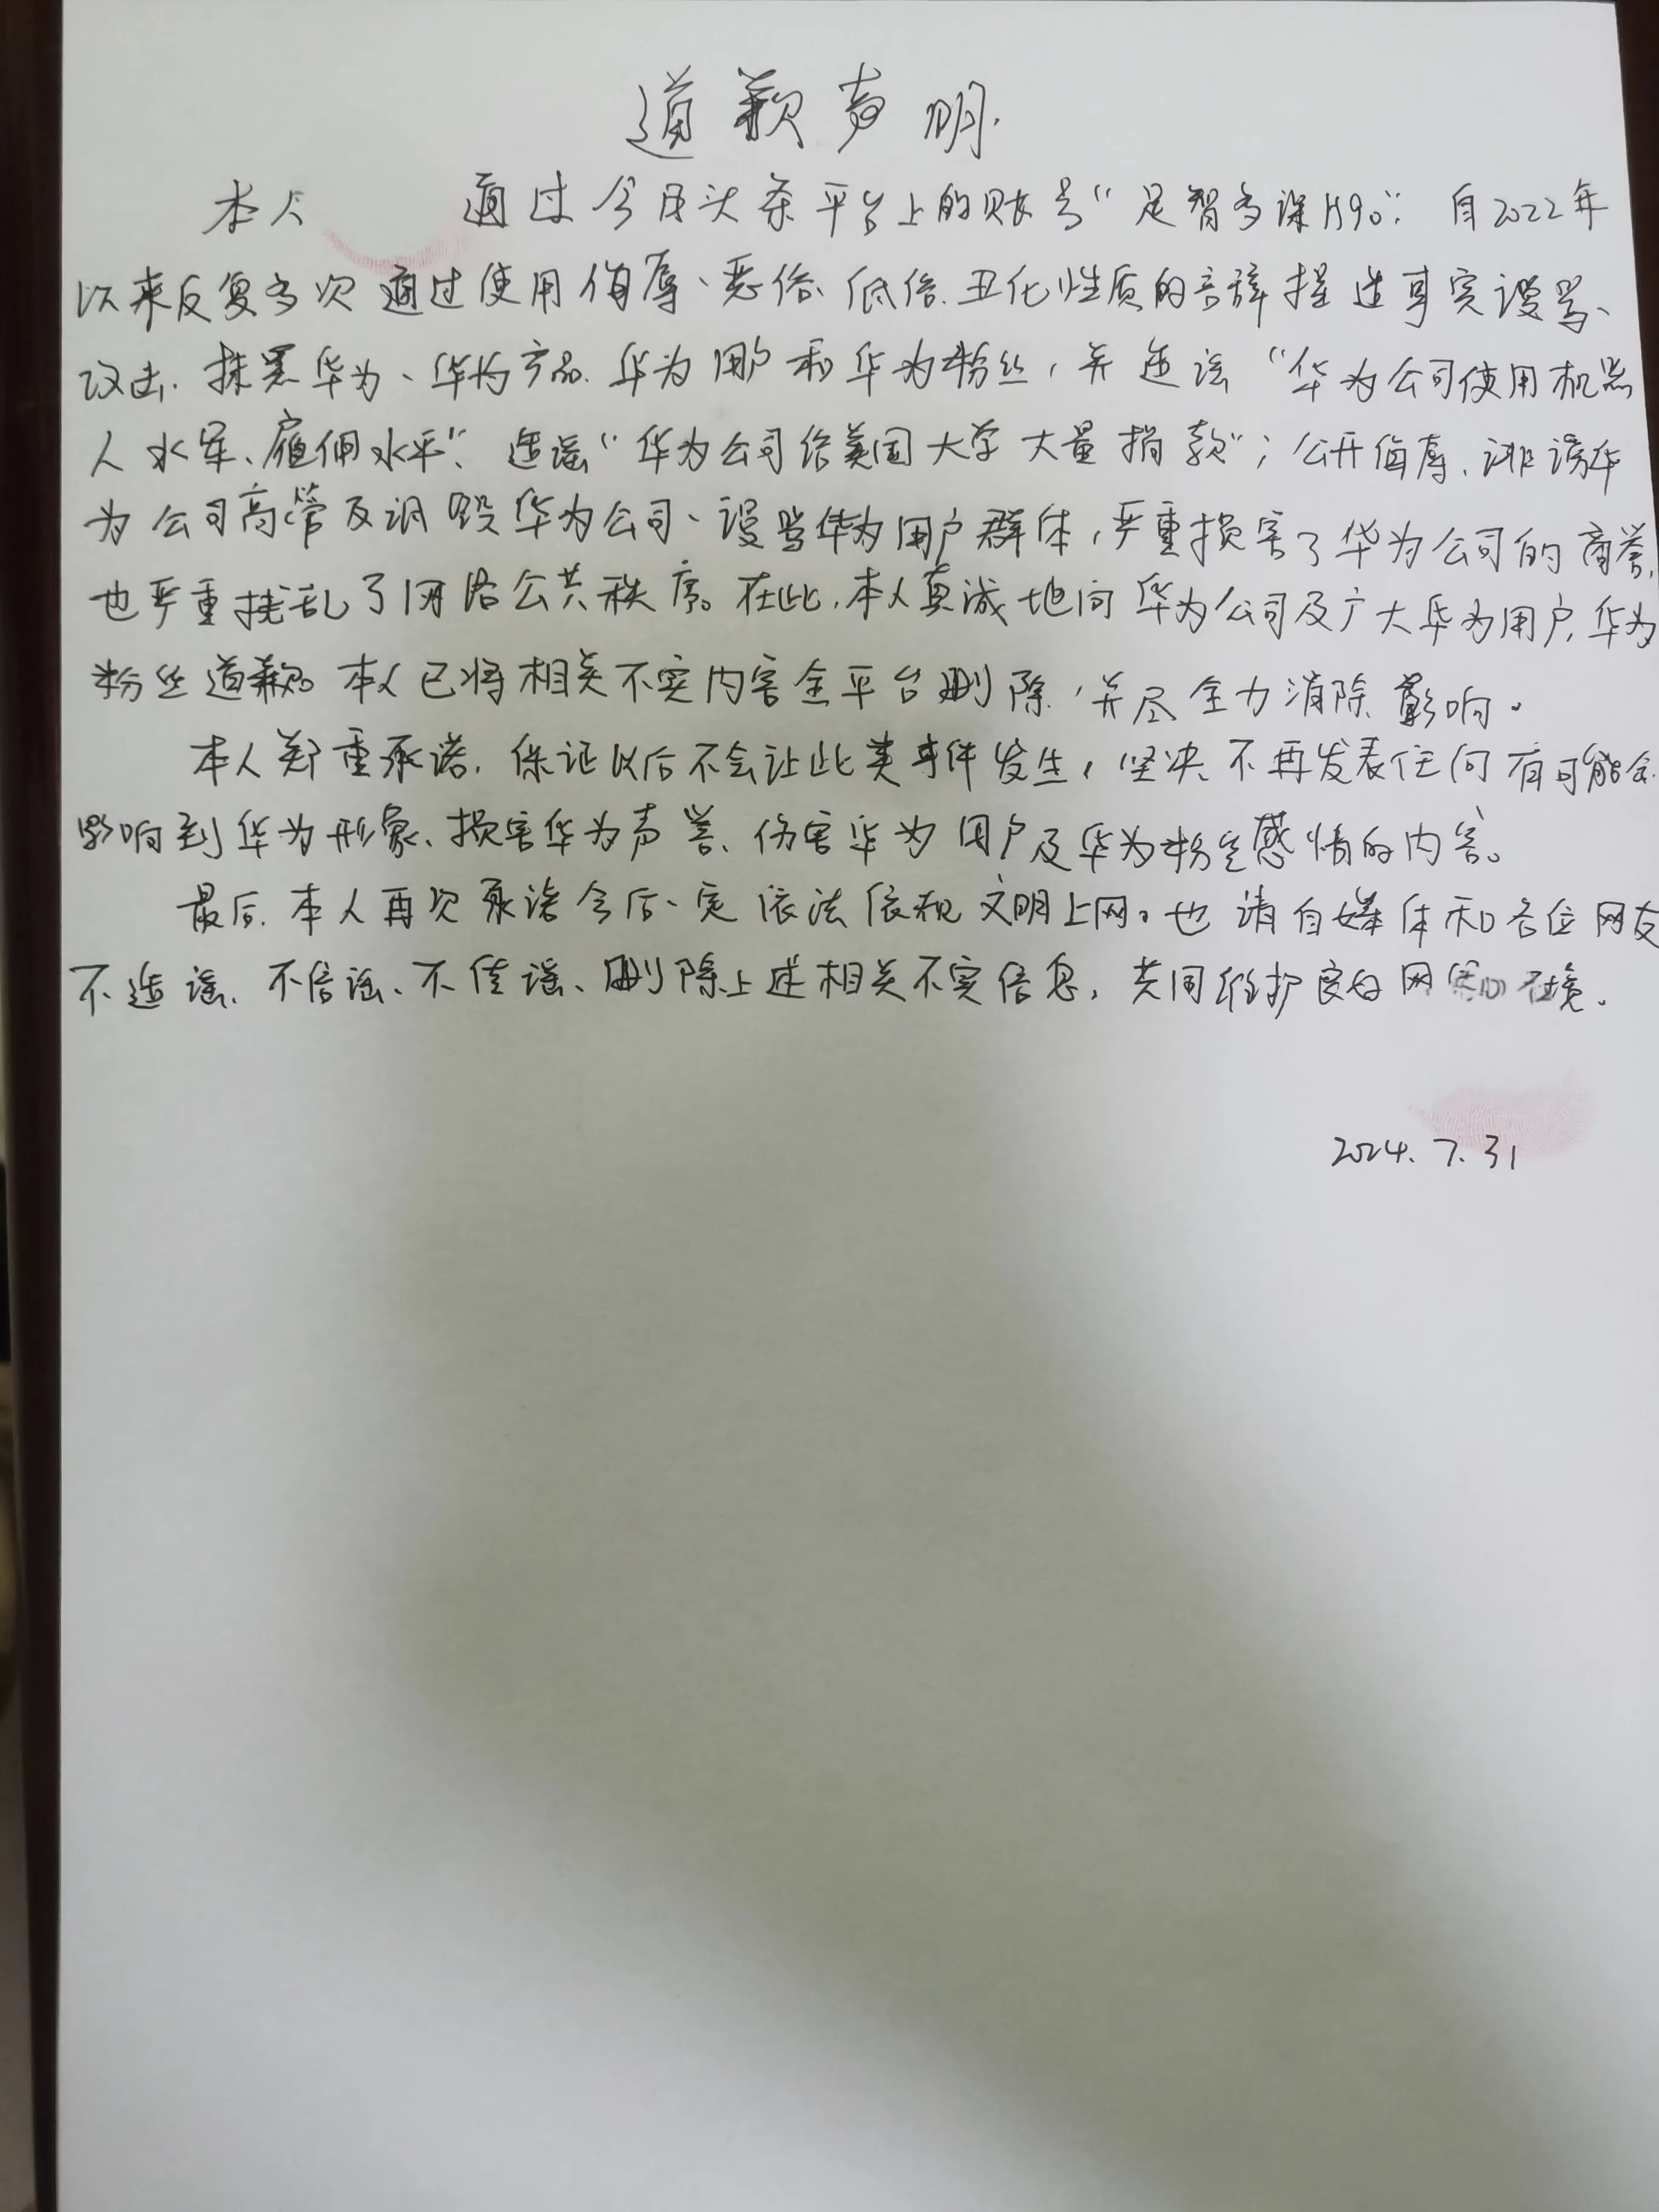 道歉声明.
本人 通过今日头条平台上的账号"足智多谋H90"，自2022年
以来反复多次通过使用侮辱、恶俗、低俗、丑化性质的言辞捏造事实谩骂、
攻击、抹黑华为、华为产品、华为用户和华为粉丝，并造谣"华为公司使用机器
人水军、雇佣水平"、造谣"华为公司给美国大学大量捐款"；公开侮辱、诽谤华
为公司高管及诋毁华为公司、谩骂华为用户群体，严重损害了华为公司的商誉，
也严重扰乱了网络公共秩序。在此，本人真诚地向华为公司及广大华为用户、华为
粉丝道歉。本人已将相关不实内容全平台删除，并尽全力消除影响。
本人郑重承诺，保证以后不会让此类事件发生，坚决不再发表任何有可能会
影响到华为形象、损害华为声誉、伤害华为用户及华为粉丝感情的内容。
最后，本人再次承诺今后一定依法依规文明上网。也请自媒体和各位网友
不造谣、不信谣、不传谣、删除上述相关不实信息，共同维护良好网 环境。
2024.7.31